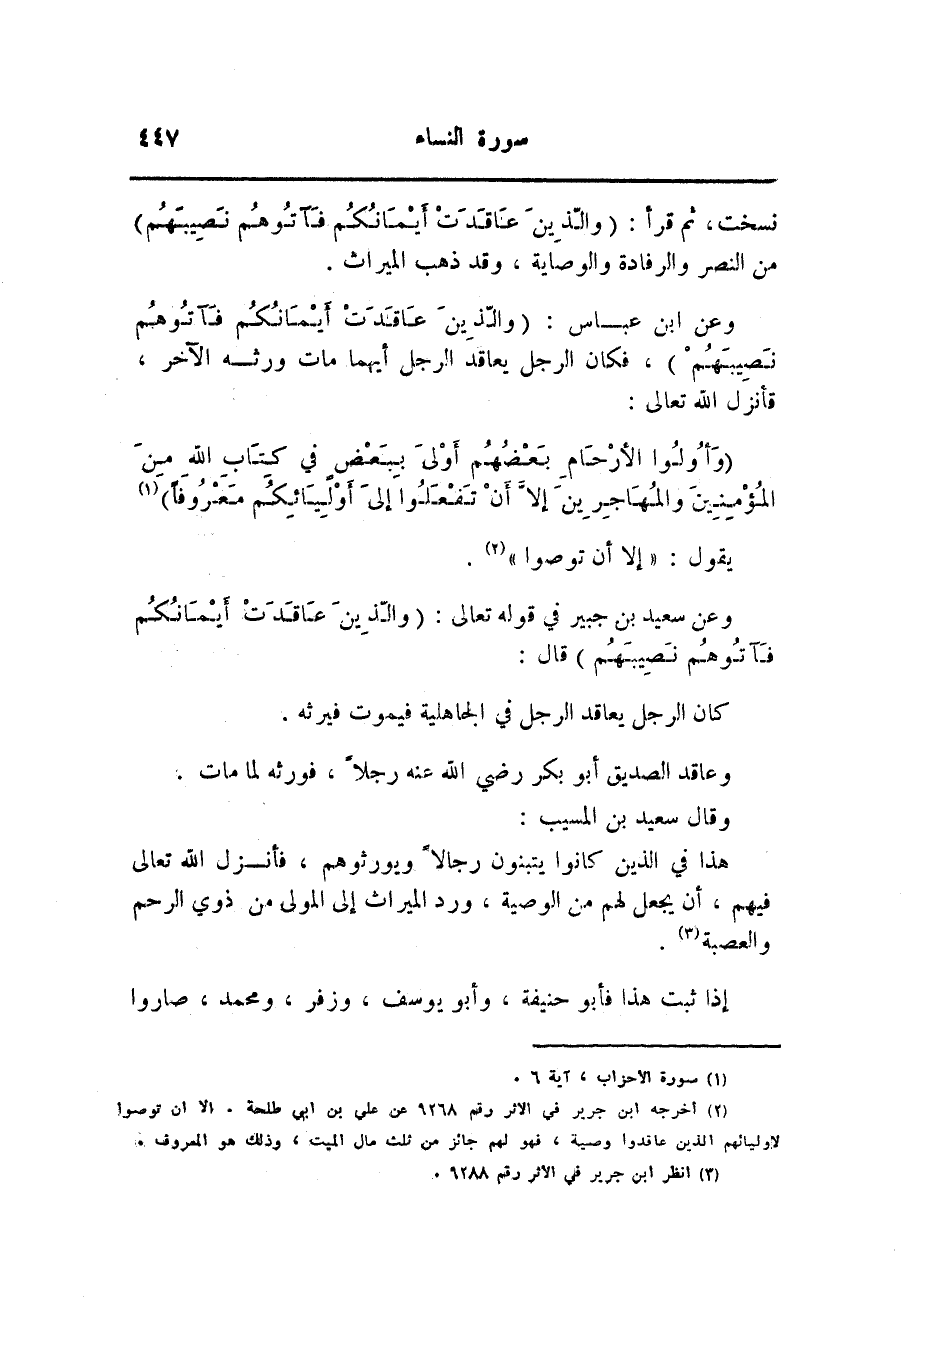 سورة النساء ٤٤٧
نسخت، ثم قرأ : ( والَّذِينَ عَاقَدَتْ أَيْمَانُكُم فَآتُوهُم نَصِيبَهُم )
من النصر والرفادة والوصاية ، وقد ذهب الميراث .
وعن ابن عباس : ( والَّذِينَ عَاقَدَتْ أَيمَانُكُم فَآتُوهُم
نَصِيبَهُمْ ) ، فكان الرجل يعاقد الرجل أيهما مات ورثه الآخر ،
فأنزل الله تعالى :
(وَأُولُوا الأرْحَامِ بَعْضُهُم أَوْلىَ بِبَعْضٍ في كِتَابِ اللهِ مِنَ
المُؤْمِنِينَ والمُهَاجِرِينَ إلاَّ أَنْ تَفْعَلُوا إلىَ أَوْلِيَائِكُم مَعْرُوفاً)(١)
يقول : « إلا أن توصوا »(٢) .
وعن سعيد بن جبير في قوله تعالى : ( والَّذِينَ عَاقَدَتْ أَيْمَانُكُم
فَآتُوهُم نَصِيبَهُم ) قال :
كان الرجل يعاقد الرجل في الجاهلية فيموت فيرثه .
وعاقد الصديق أبو بكر رضي الله عنه رجلاً ، فورثه لما مات .
وقال سعيد بن المسيب :
هذا في الذين كانوا يتبنون رجالاً ويورثوهم ، فأنزل الله تعالى
فيهم ، أن يجعل لهم من الوصية ، ورد الميراث إلى المولى من ذوي الرحم
والعصبة(٣) .
إذا ثبت هذا فأبو حنيفة ، وأبو يوسف ، وزفر ، ومحمد ، صاروا
(١) سورة الاحزاب ، آية ٦ .
(٢) أخرجه ابن جرير في الاثر رقم ٩٢٦٨ عن علي بن ابي طلحة . الا ان توصوا
لاوليائهم الذين عاقدوا وصية ، فهو لهم جائز من ثلث مال الميت ، وذلك هو المعروف .
(٣) انظر ابن جرير في الاثر رقم ٩٢٨٨ .